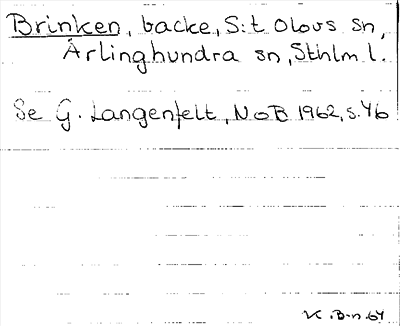 Brinken, backe, S:t Olovs sn,
Ärlinghundra sn, Sthlm l.
Se G. Langenfelt, NoB 1962, s. 46
K. B-n. 64